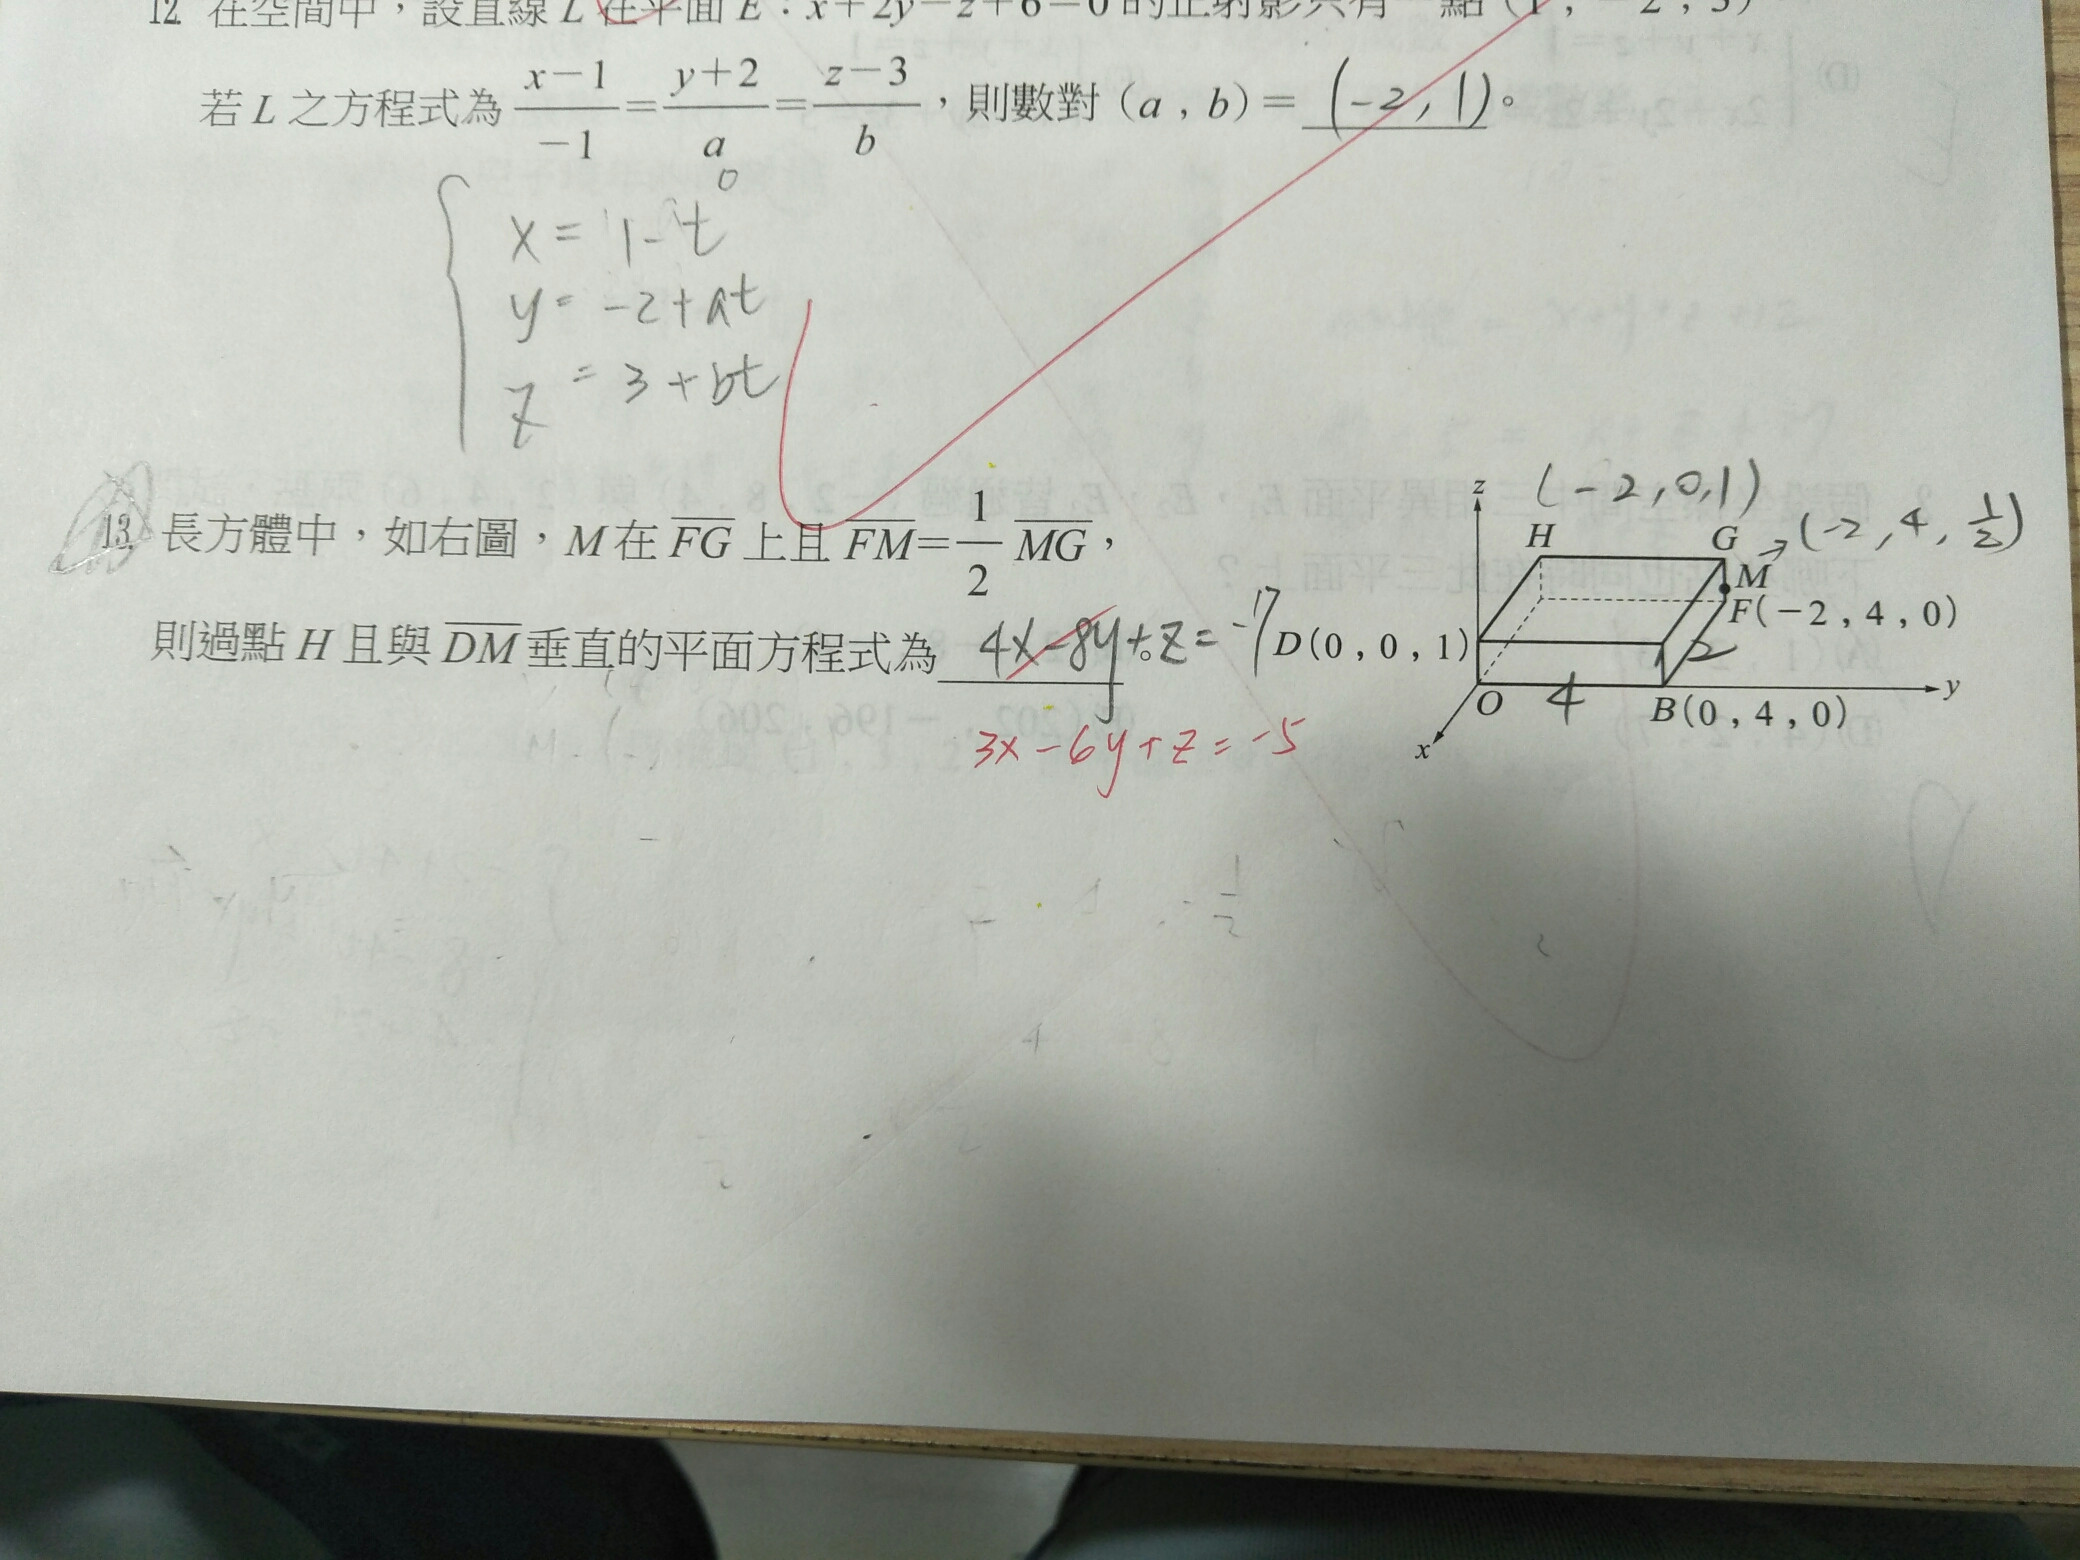 12 在空間中，設直線 L 在平面 E：x＋2y－z＋6＝0 的正射影只有一點（1，－2，3）
若 L 之方程式為 \frac{x－1}{－1}＝\frac{y＋2}{a}＝\frac{z－3}{b}，則數對（a，b）＝ (-2, 1)。
0
x = 1 - t
y = -2 + at
z = 3 + bt
13 長方體中，如右圖，M 在 \overline{FG} 上且 \overline{FM}＝\frac{1}{2} \overline{MG}，
則過點 H 且與 \overline{DM} 垂直的平面方程式為 4x-8y+z=-17。
3x-6y+z=-5
z (-2,0,1)
H G (-2,4,\frac{1}{2})
M
F(－2，4，0)
D(0，0，1) 2
O 4 B(0，4，0) y
x